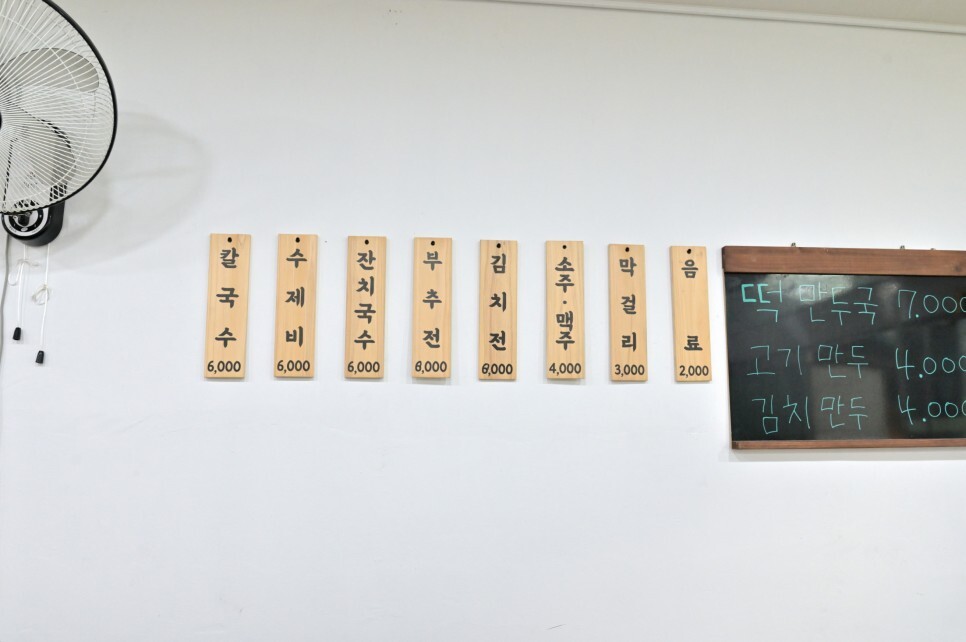 칼국수
6,000
수제비
6,000
잔치국수
6,000
부추전
6,000
김치전
6,000
소주·맥주
4,000
막걸리
3,000
음료
2,000
떡만두국 7.000
고기만두 4.000
김치만두 4.000